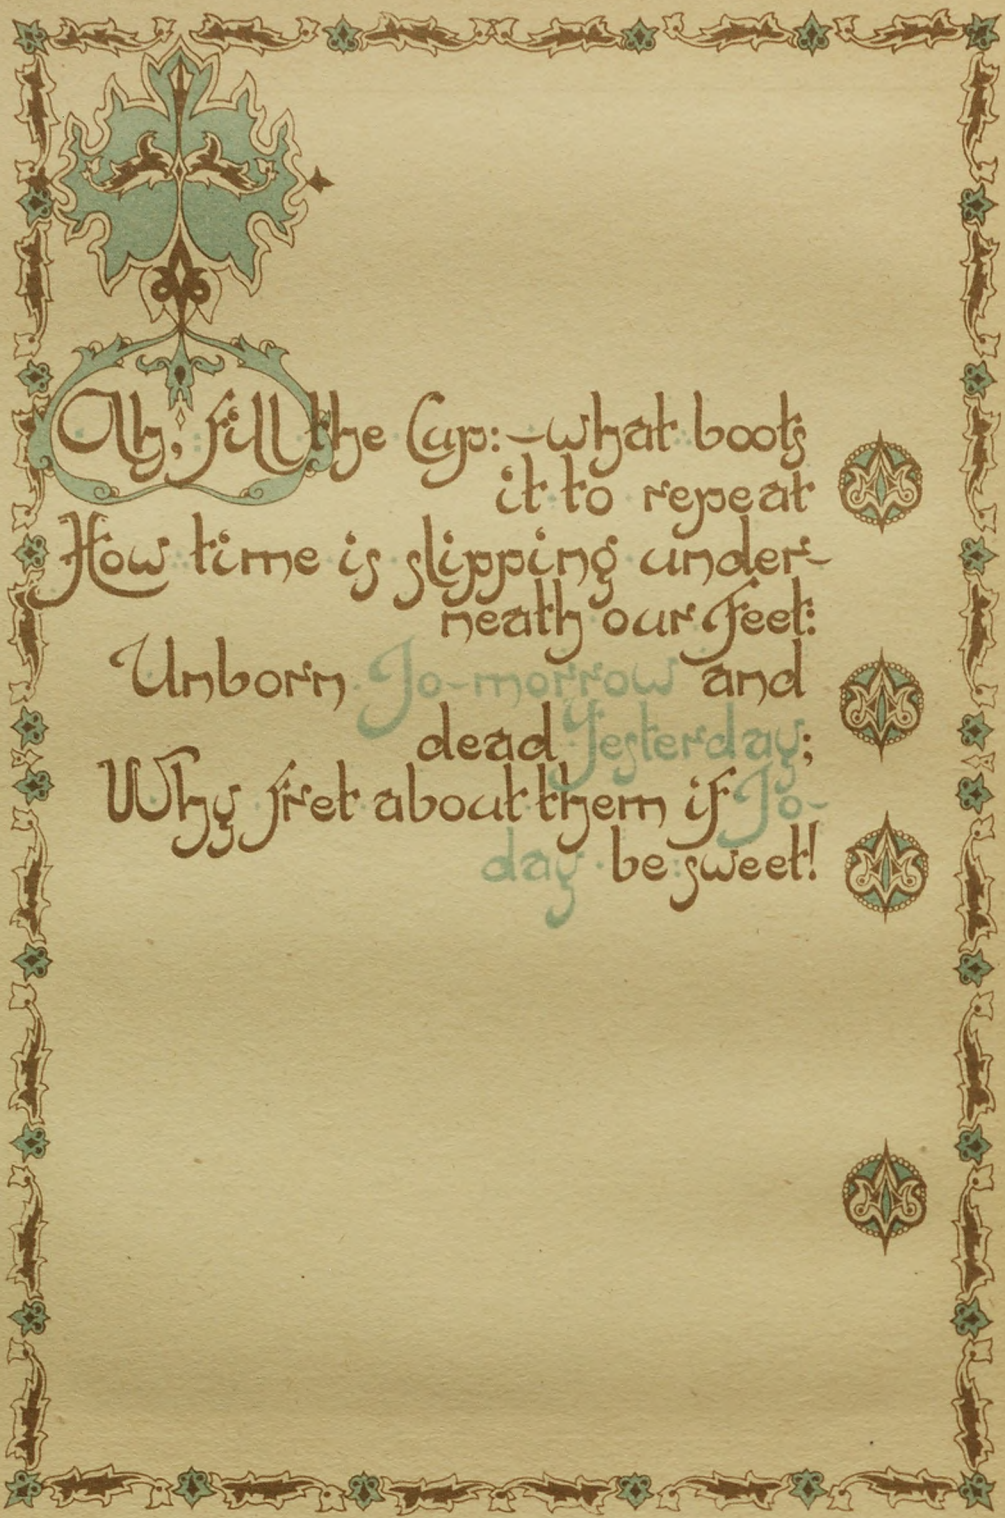 Ah, fill the Cup:—what boots
it to repeat
How time is slipping under-
neath our Feet:
Unborn To-morrow and
dead Yesterday;
Why fret about them if To-
day be sweet!